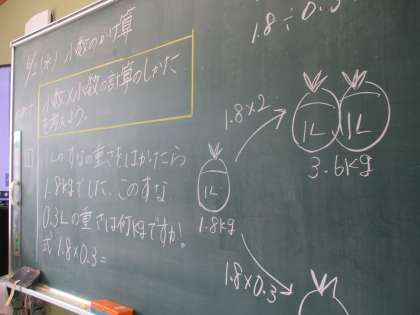 小数のかけ算
小数×小数の計算のしかた
を考えよう。
1 1Lのすなの重さをはかったら
1.8kgでした。このすな
0.3Lの重さは何kgですか。
式 1.8×0.3=
1.8÷0.3
1.8×2
1L
1L
3.6kg
1L
1.8kg
1.8×0.3